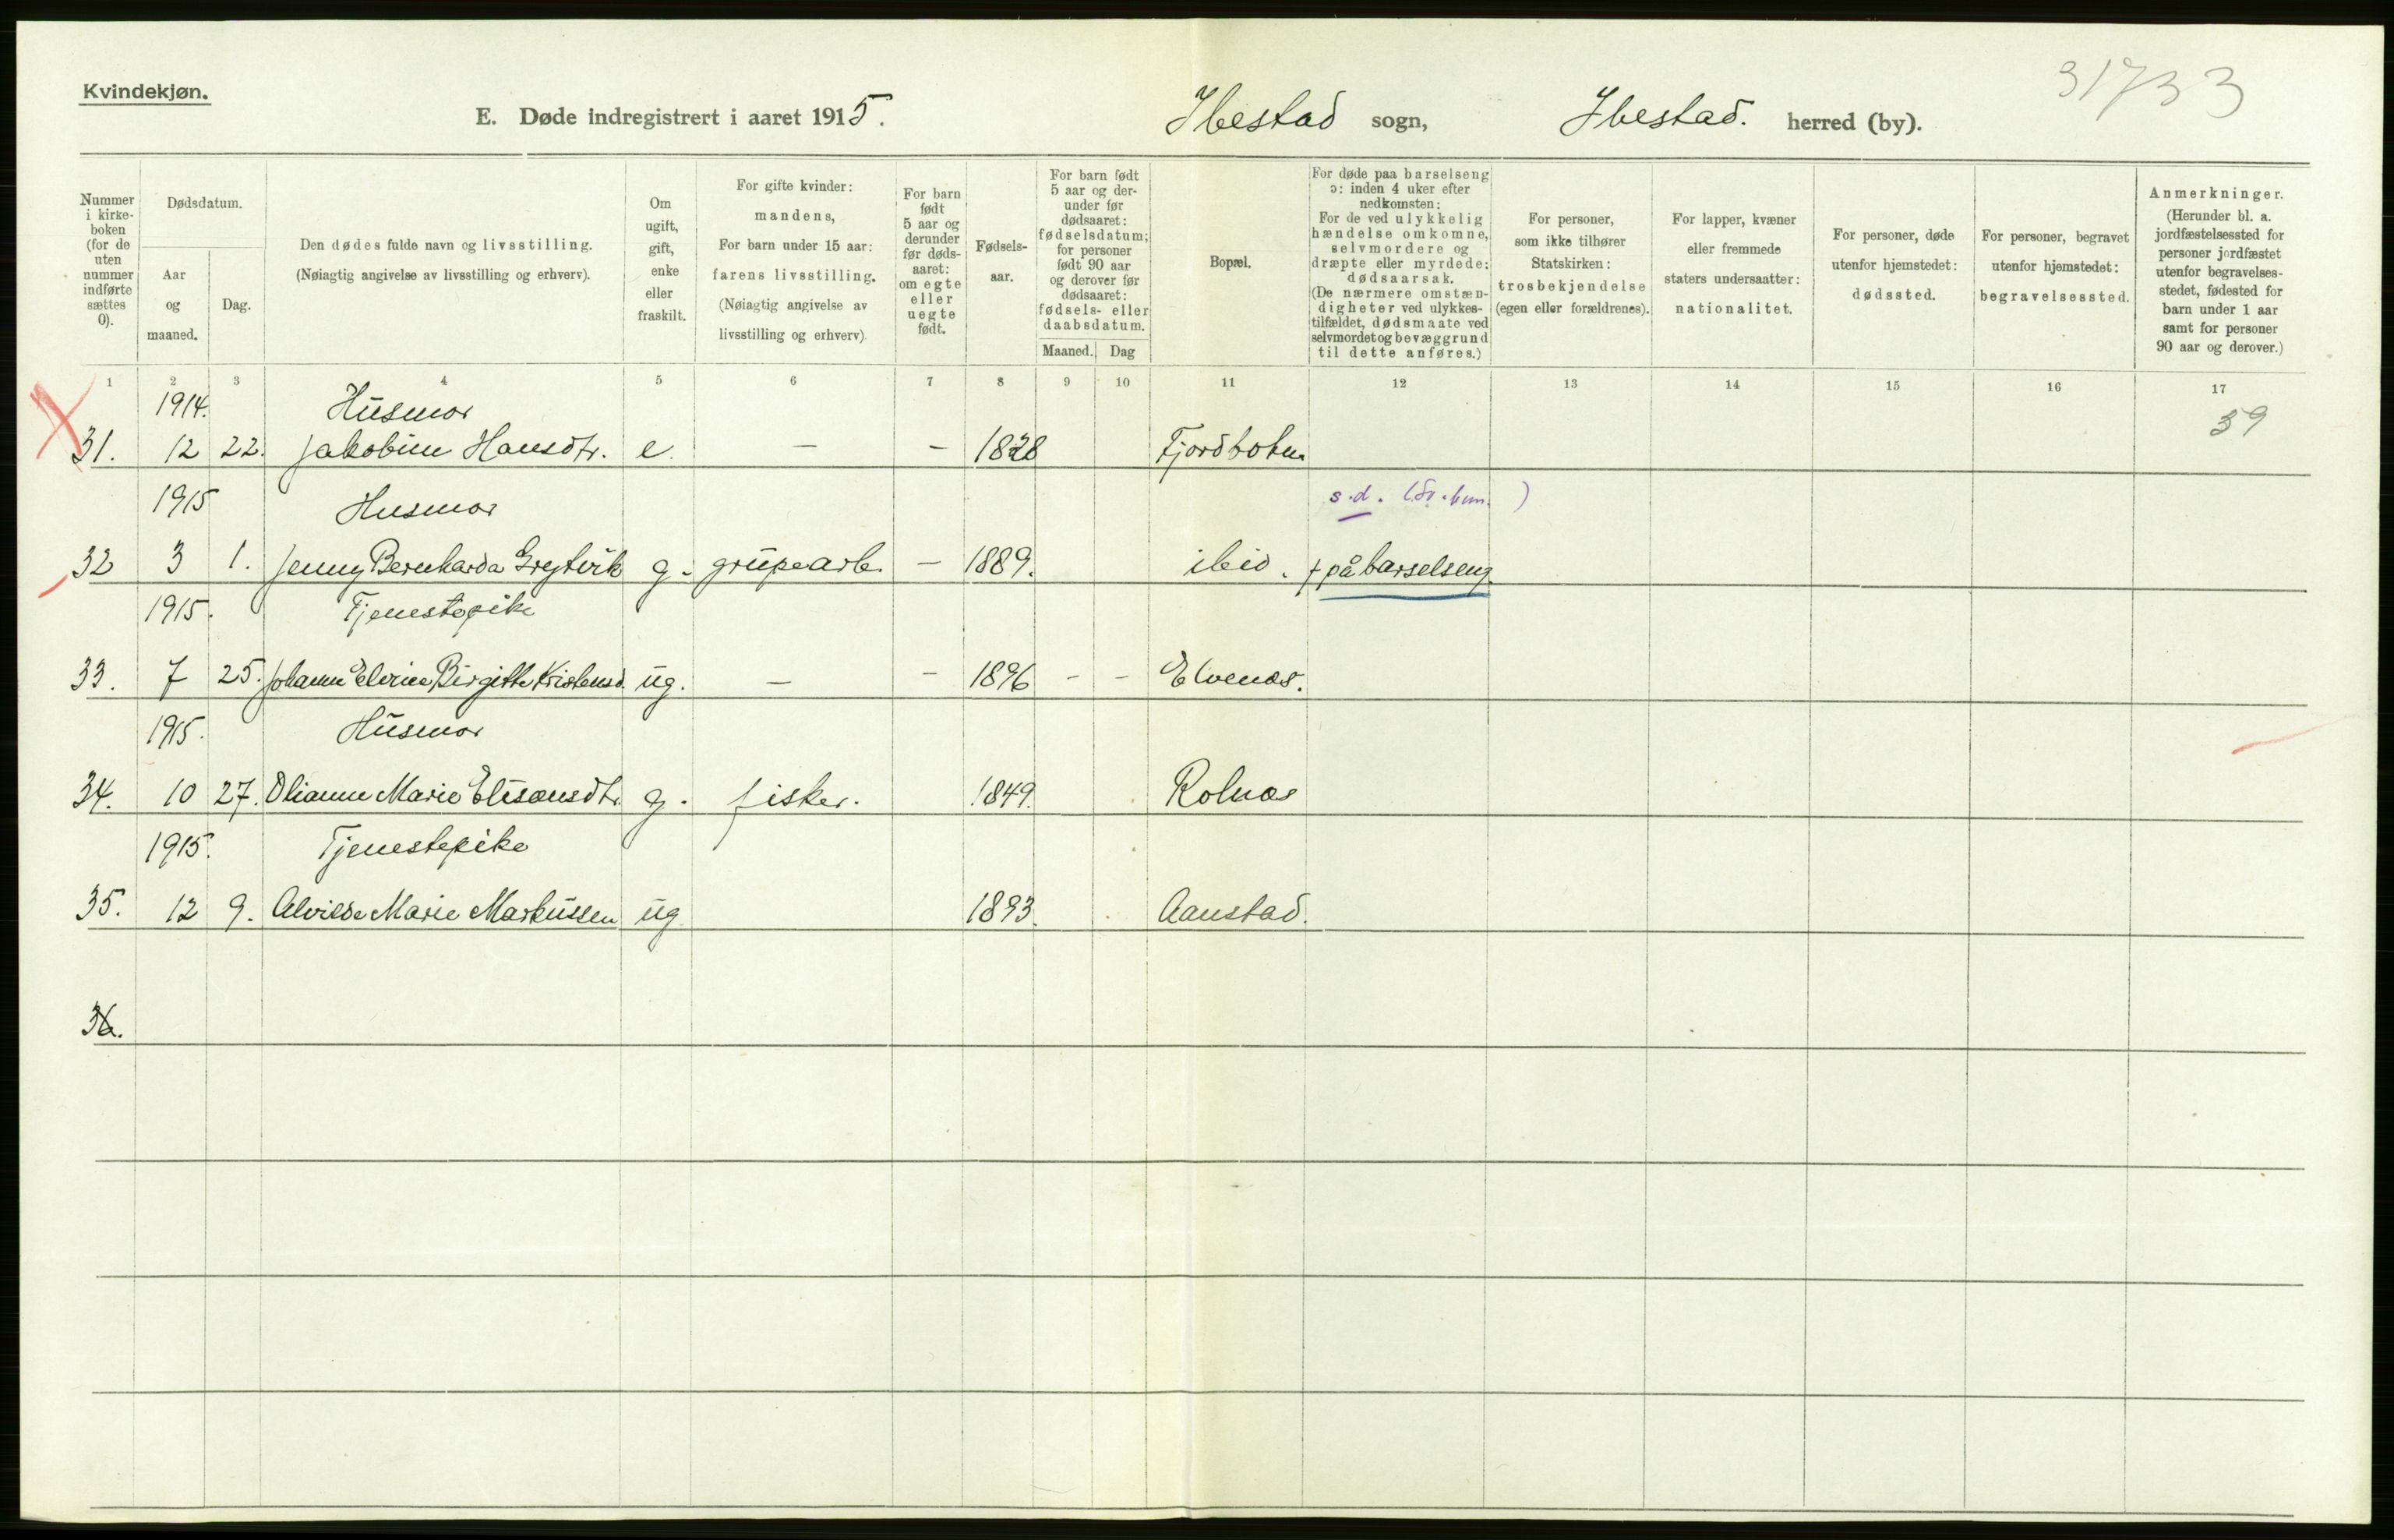 Kvindekjøn.
E. Døde indregistrert i aaret 1915. Ibestad sogn, Ibestad. herred (by).
31733
Nummer i kirke- boken (for de uten nummer indførte sættes 0).
Dødsdatum.
Aar og maaned.
Dag.
Den dødes fulde navn og livsstilling.
(Nøiagtig angivelse av livsstilling og erhverv).
Om ugift, gift, enke eller fraskilt.
For gifte kvinder:
mandens,
For barn under 15 aar:
farens livsstilling.
(Nøiagtig angivelse av
livsstilling og erhverv)
For barn født 5 aar og derunder før døds- aaret: om egte eller uegte født.
Fødsels- aar.
For barn født 5 aar og der- under før dødsaaret: fødselsdatum; for personer født 90 aar og derover før dødsaaret: fødsels- eller daabsdatum.
Maaned. Dag
Bopæl.
For døde paa barselseng
ɔ: inden 4 uker efter
nedkomsten:
For de ved ulykkelig
hændelse omkomne,
selvmordere og
dræpte eller myrdede:
dødsaarsak.
(De nærmere omstæn-
digheter ved ulykkes-
tilfældet, dødsmaate ved
selvmordet og bevæggrund
til dette anføres.)
For personer,
som ikke tilhører
Statskirken:
trosbekjendelse
(egen eller forældrenes).
For lapper, kvæner
eller fremmede
staters undersaatter:
nationalitet.
For personer, døde
utenfor hjemstedet:
dødssted.
For personer, begravet
utenfor hjemstedet:
begravelsessted.
Anmerkninger.
(Herunder bl. a.
jordfæstelsessted for
personer jordfæstet
utenfor begravelses-
stedet, fødested for
barn under 1 aar
samt for personer
90 aar og derover.)
1 2 3 4 5 6 7 8 9 10 11 12 13 14 15 16 17
1914. Husmor
31. 12 22. Jakobine Hansdtr. e. — – 1828 Fjordbotn 39
1915 Husmor s.d.
32 3 1. Jenny Bernharda g. grubearb. – 1889. ibid. + på barselseng.
1915. Tjenestepike
33. 7 25. Birgitte Kristensd. ug. — – 1896 – – Elvenæs.
1915. Husmor
34. 10 27. Olianne Marie Elisæusdtr. g. fisker. 1849. Rolnæs
1915. Tjenestepike
35. 12 9. Alvilde Marie Markussen ug 1893. Aanstad.
36.